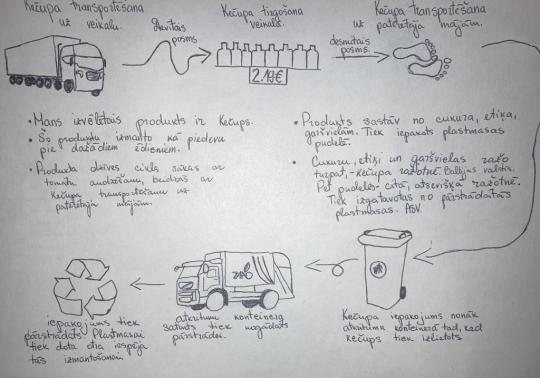 Kečupa transportēšana
uz veikalu.
devītais
posms
Kečupa tirgošana
veikalā.
2.19€
desmitais
posms.
Kečupa transportēšana
uz patērētāja mājām.
• Mans izvēlētais produkts ir kečups.
• Šo produktu izmanto kā piedevu
pie dažādiem ēdieniem.
• Produkta dzīves cikls sākas ar
tomātu audzēšanu, beidzas ar
kečupa transportēšanu uz
patērētāja mājām.
• Produkts sastāv no cukura, etiķa,
garšvielām. Tiek iepakots plastmasas
pudelē.
• Cukuru, etiķi un garšvielas ražo
turpat,- kečupa ražotnē Baltijas valstīs.
Pet pudeles- citā, atsevišķā ražotnē.
Tiek izgatavotas no pārstrādātas
plastmasas. ASV.
iepakojums tiek
pārstrādāts. Plastmasai
tiek dota otra iespēja
tās izmantošanai
atkritumu konteinera
saturs tiek nogādāts
pārstrādei.
Kečupa iepakojums nonāk
atkritumu konteinerā tad, kad
kečups tiek izlietots